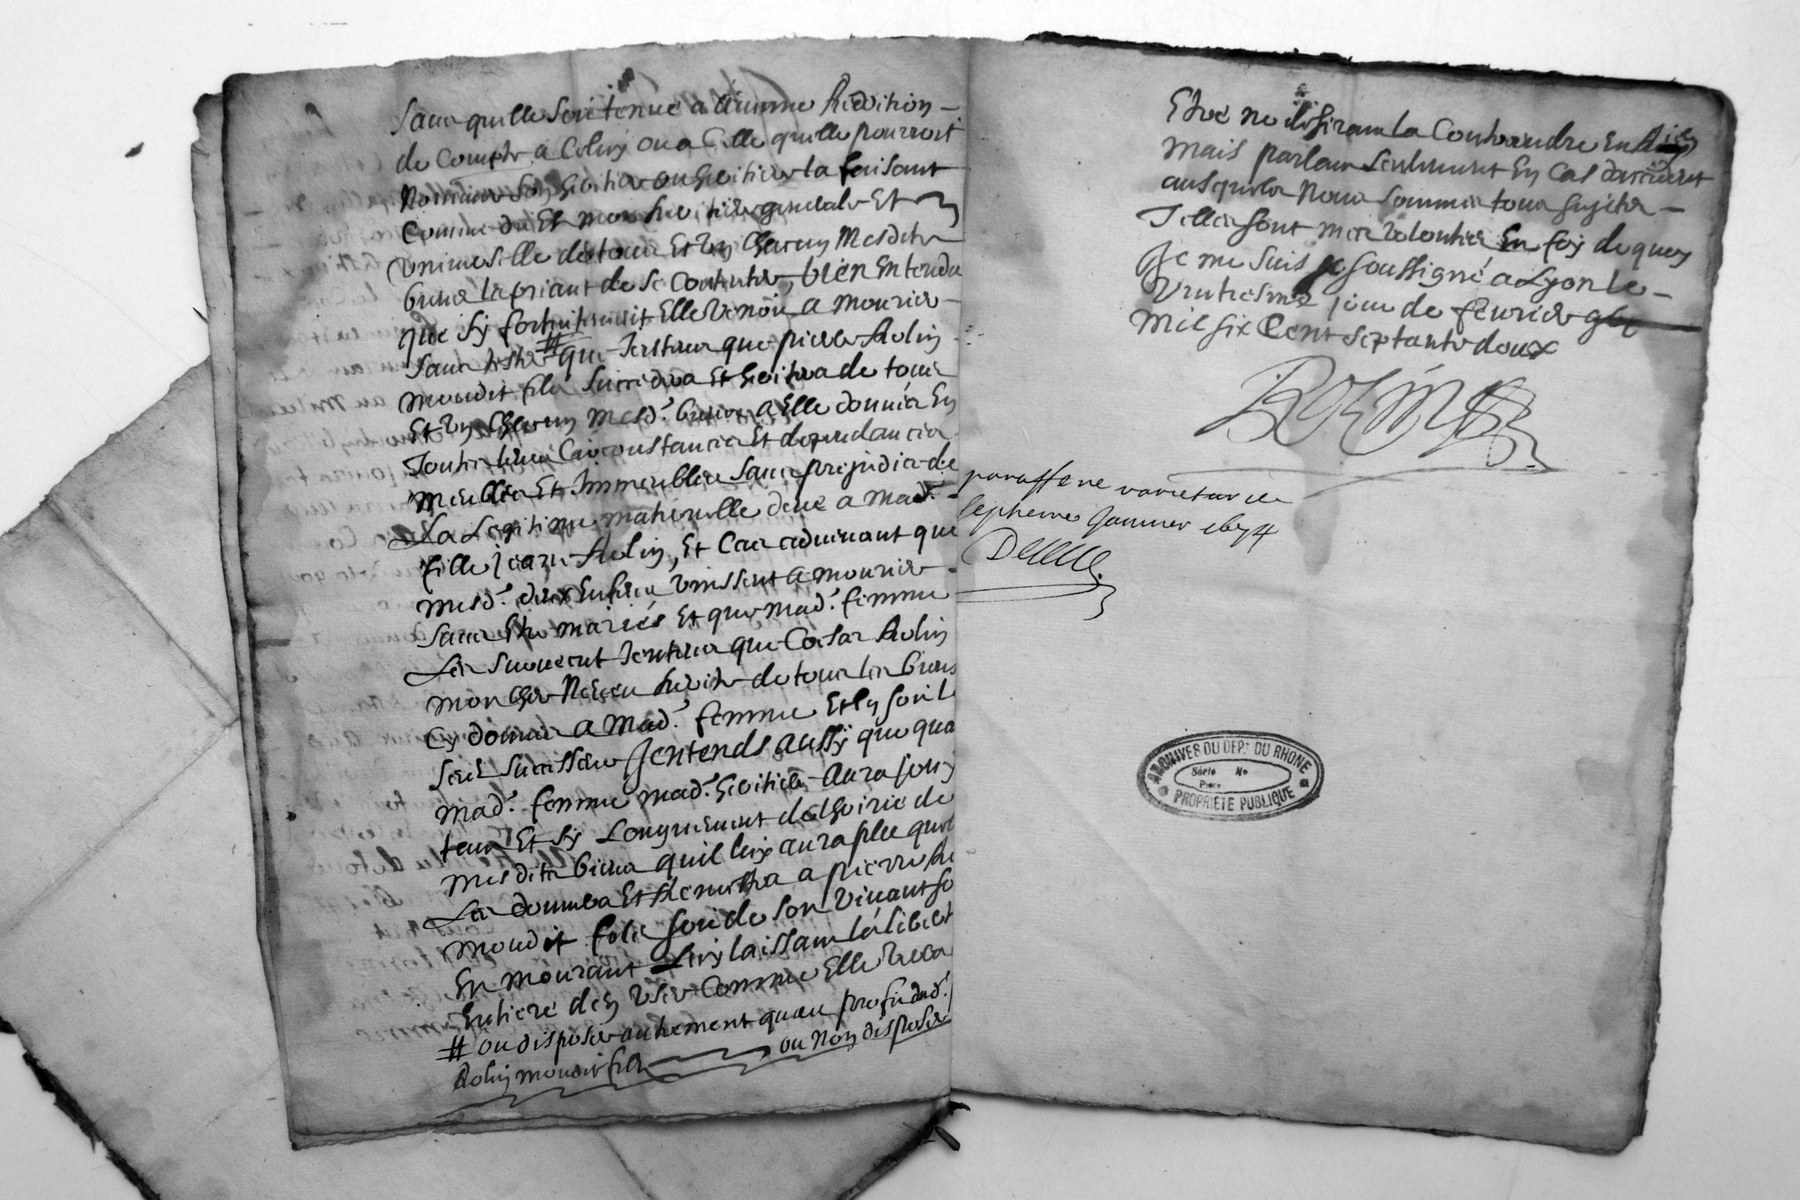 sans quelle soit tenue a aucune Redition
de Compte a Celuy ou a Celle quelle pourroit
Nommer son heritier ou heritiere la faisant
Comme dit Et mon heritiere generale Et
universelle de tous Et un Chacun Mesdits
biens la priant de se Contenter, bien Entendu
que sy fortuitement Elle Venoit a mourir
sans tester # que Jentens que pierre Rolin
mondit fils succedera Et heritera de tous
Et un Chacun mesd.s biens a Elle donnés En
toutes leurs Circonstances Et dependances
Meubles Et Immeubles sans prejudice de
La Legitime maternelle deue a mad.e
fille jeane Rolin, Et Cas advenant que
mesd.s deux Enfans Vinssent a mourir
sans Estre mariés Et que mad.e femme
Les survecut Jentens que Cesar Rolin
mon cher Neveu herite de tous les biens
Cy donnés a mad.e femme Et En soit le
seul successeur Jentends aussy que qua
mad.e femme mad.e heritiere aura jouy
tant Et sy Longuement de lhoirie de
mesdits biens quil luy aura plu quel
Les donnera Et Remettra a pierre Ro
mondit fils soit de son Vivant so
En mourant Luy laissant la libert
Entiere den User Comme Elle Verra
# ou disposer autrement quau profit dud.
Rolin mondit fils ou Non disposer
Estre ne desirant la Contraindre En Rien
Mais parlant seulement En Cas daccident
ausquels Nous sommes tous sujets
Telles sont mes volontés En foy de quoy
Je me suis soussigné a Lyon le
Vintiesme jour de fevrier
Mil six Cent septante deux
ROLIN
paraffé ne varietur ce
septieme Janvier 1674
ARCHIVES DU DEPT DU RHONE
Série No
Pièce
PROPRIÉTÉ PUBLIQUE